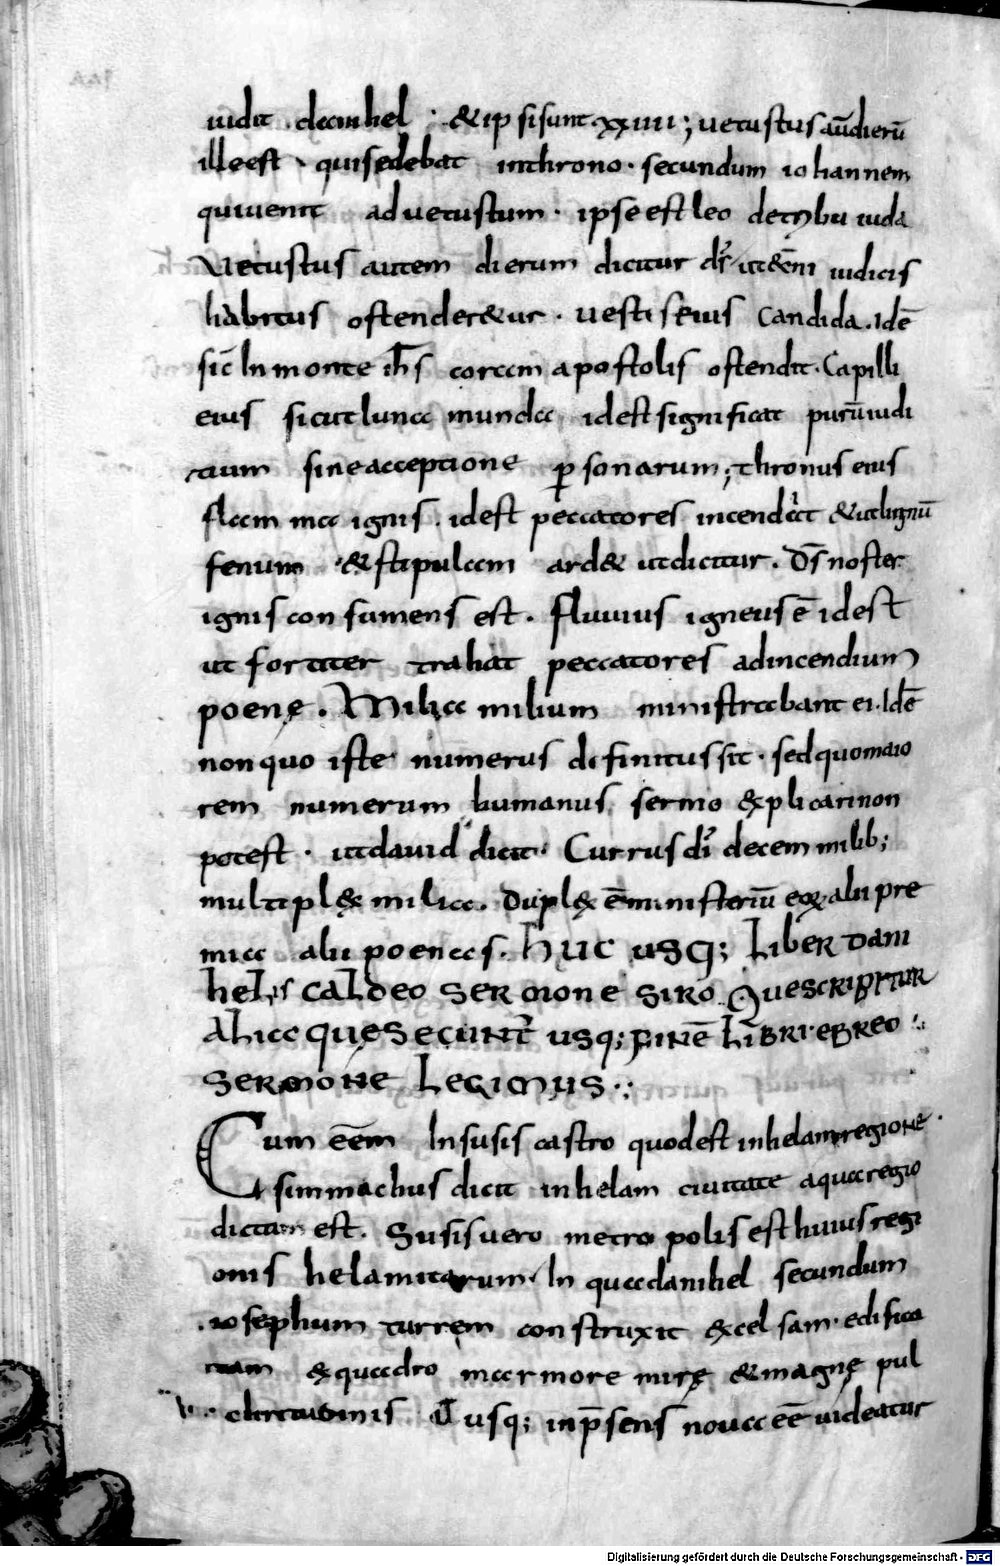 uidit danihel · & ipsi sunt xxiiii; uetustus au̅ dieru̅
ille est · qui sedebat in throno · secundum iohannem
qui uenit ad uetustum · ipse est leo de tribu iuda
Uetustus autem dierum dicitur dr̅ ut &e̅ni iudicis
habitus ostender&ur · uestis eius candida . Ide̅
sic̅ In monte ih̅s coram apostolis ostendit · Capilli
eius sicut lana munda idest significat puru̅ iudi
tium sine acceptione p̲sonarum ; thronus eius
flamma ignis . idest peccatores incendat & ut lignu̅
fenum & stipulam ard& ut dicitur . Ds̅ noster
ignis consumens est . Fluuius igneus e̅ idest
ut fortiter trahat peccatores ad incendium
poenę . Milia milium ministrabant ei . Ide̅
non quo iste numerus definitus sit · sed quo maio
rem numerum humanus sermo explicari non
potest · ut dauid dicit · Currus di̅ decem milib;
multiplex milia . Duplex e̅ ministeriu̅ eoꝝ alii pre
mia alii poenas . Huc usq; liber dani
helis caldeo sermone siro que scribitur
alia que secunt̅ usq; fine̅ libri ebreo
sermone legimus ·:
Cum ee̅m In susis castro quod est in helam regione ·
simmachus dicit in helam ciuitate a qua regio
dicta est . Susis uero metropolis est huius regi
onis helamitarum · In qua danihel secundum
iosephum turrem construxit excelsam · edifica
tam ex quadro marmore mirę & magnę pul
chritudinis Ut usq; in p̅sens noua ee̅ uideatur
Digitalisierung gefördert durch die Deutsche Forschungsgemeinschaft - DFG